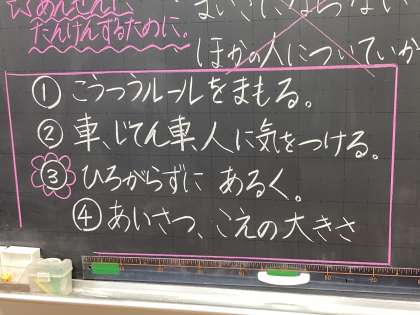 あんぜんに
たんけんするために。
まいごにならない
ほかの人についていか
① こうつうルールをまもる。
② 車、じてん車、人に気をつける。
③ ひろがらずに あるく。
④ あいさつ、こえの大きさ